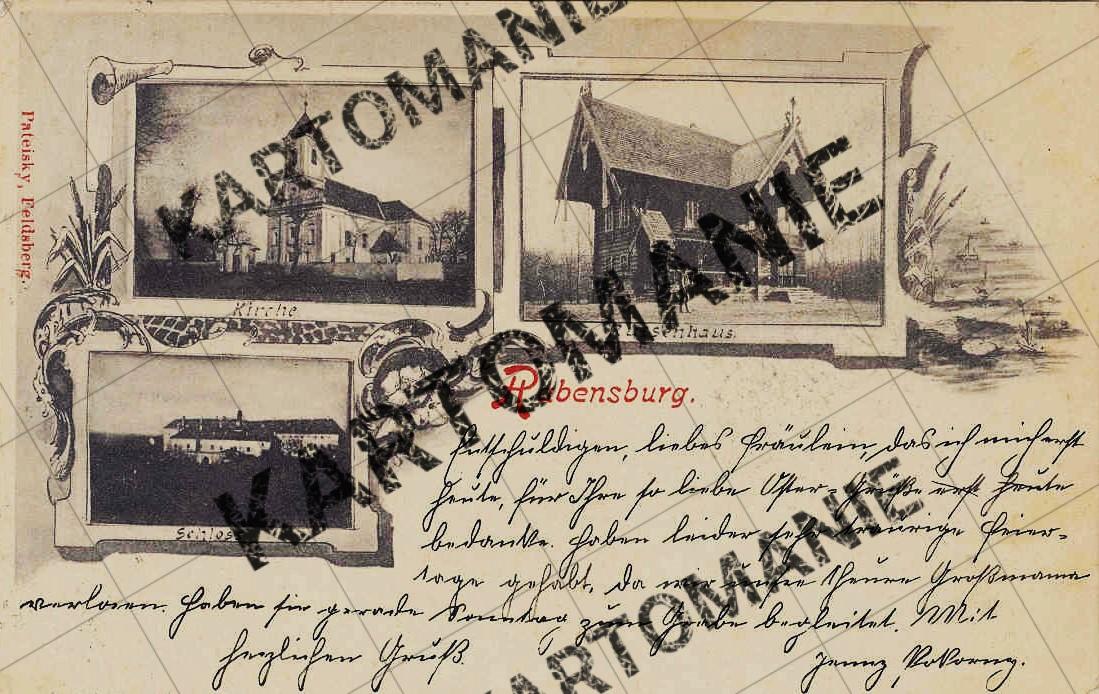 Pateisky, Feldsberg.
Kirche
Schloss
Rabensburg.
Entschuldigen, liebes Fräulein, das ich mich erst
heute, für Ihre so liebe Oster-Grüße erst heute
bedanke. Haben leider sehr traurige Feier-
tage gehabt, da wir unsre theure Großmama
verloren. Haben sie gerade Sonntag zum Grabe begleitet. Mit
herzlichen Gruß.
Jenny Pokorny.
KARTOMANIE
KARTOMANIE
KARTOMANIE